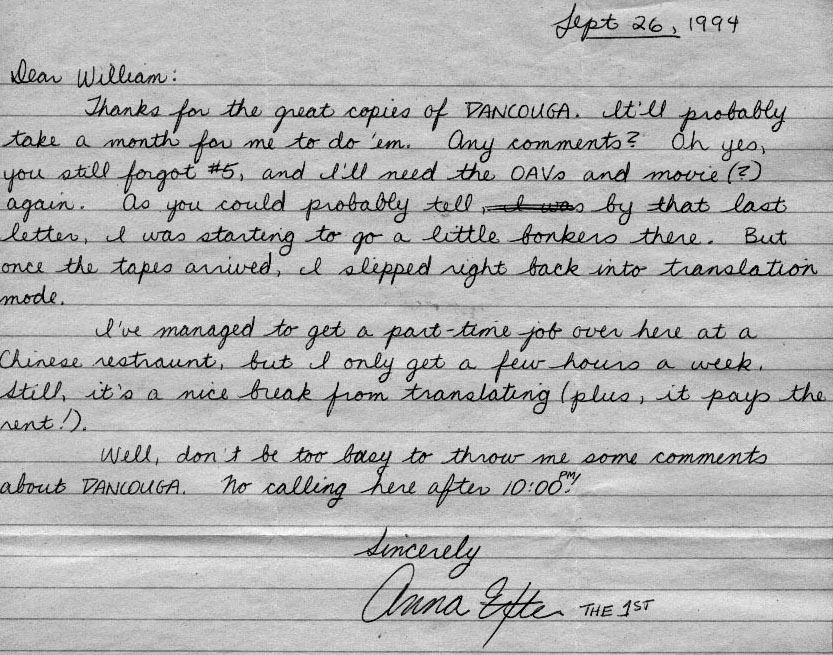 Sept 26, 1994
Dear William:
Thanks for the great copies of DANCOUGA. It'll probably
take a month for me to do 'em. Any comments? Oh yes,
you still forgot #5, and I'll need the OAVs and movie (?)
again. As you could probably tell, I was by that last
letter, I was starting to go a little bonkers there. But
once the tapes arrived, I slipped right back into translation
mode.
I've managed to get a part-time job over here at a
Chinese restraunt, but I only get a few hours a week.
Still, it's a nice break from translating (plus, it pays the
rent!).
Well, don't be too busy to throw me some comments
about DANCOUGA. No calling here after 10:00 PM!
Sincerely
Anna Exter THE 1ST